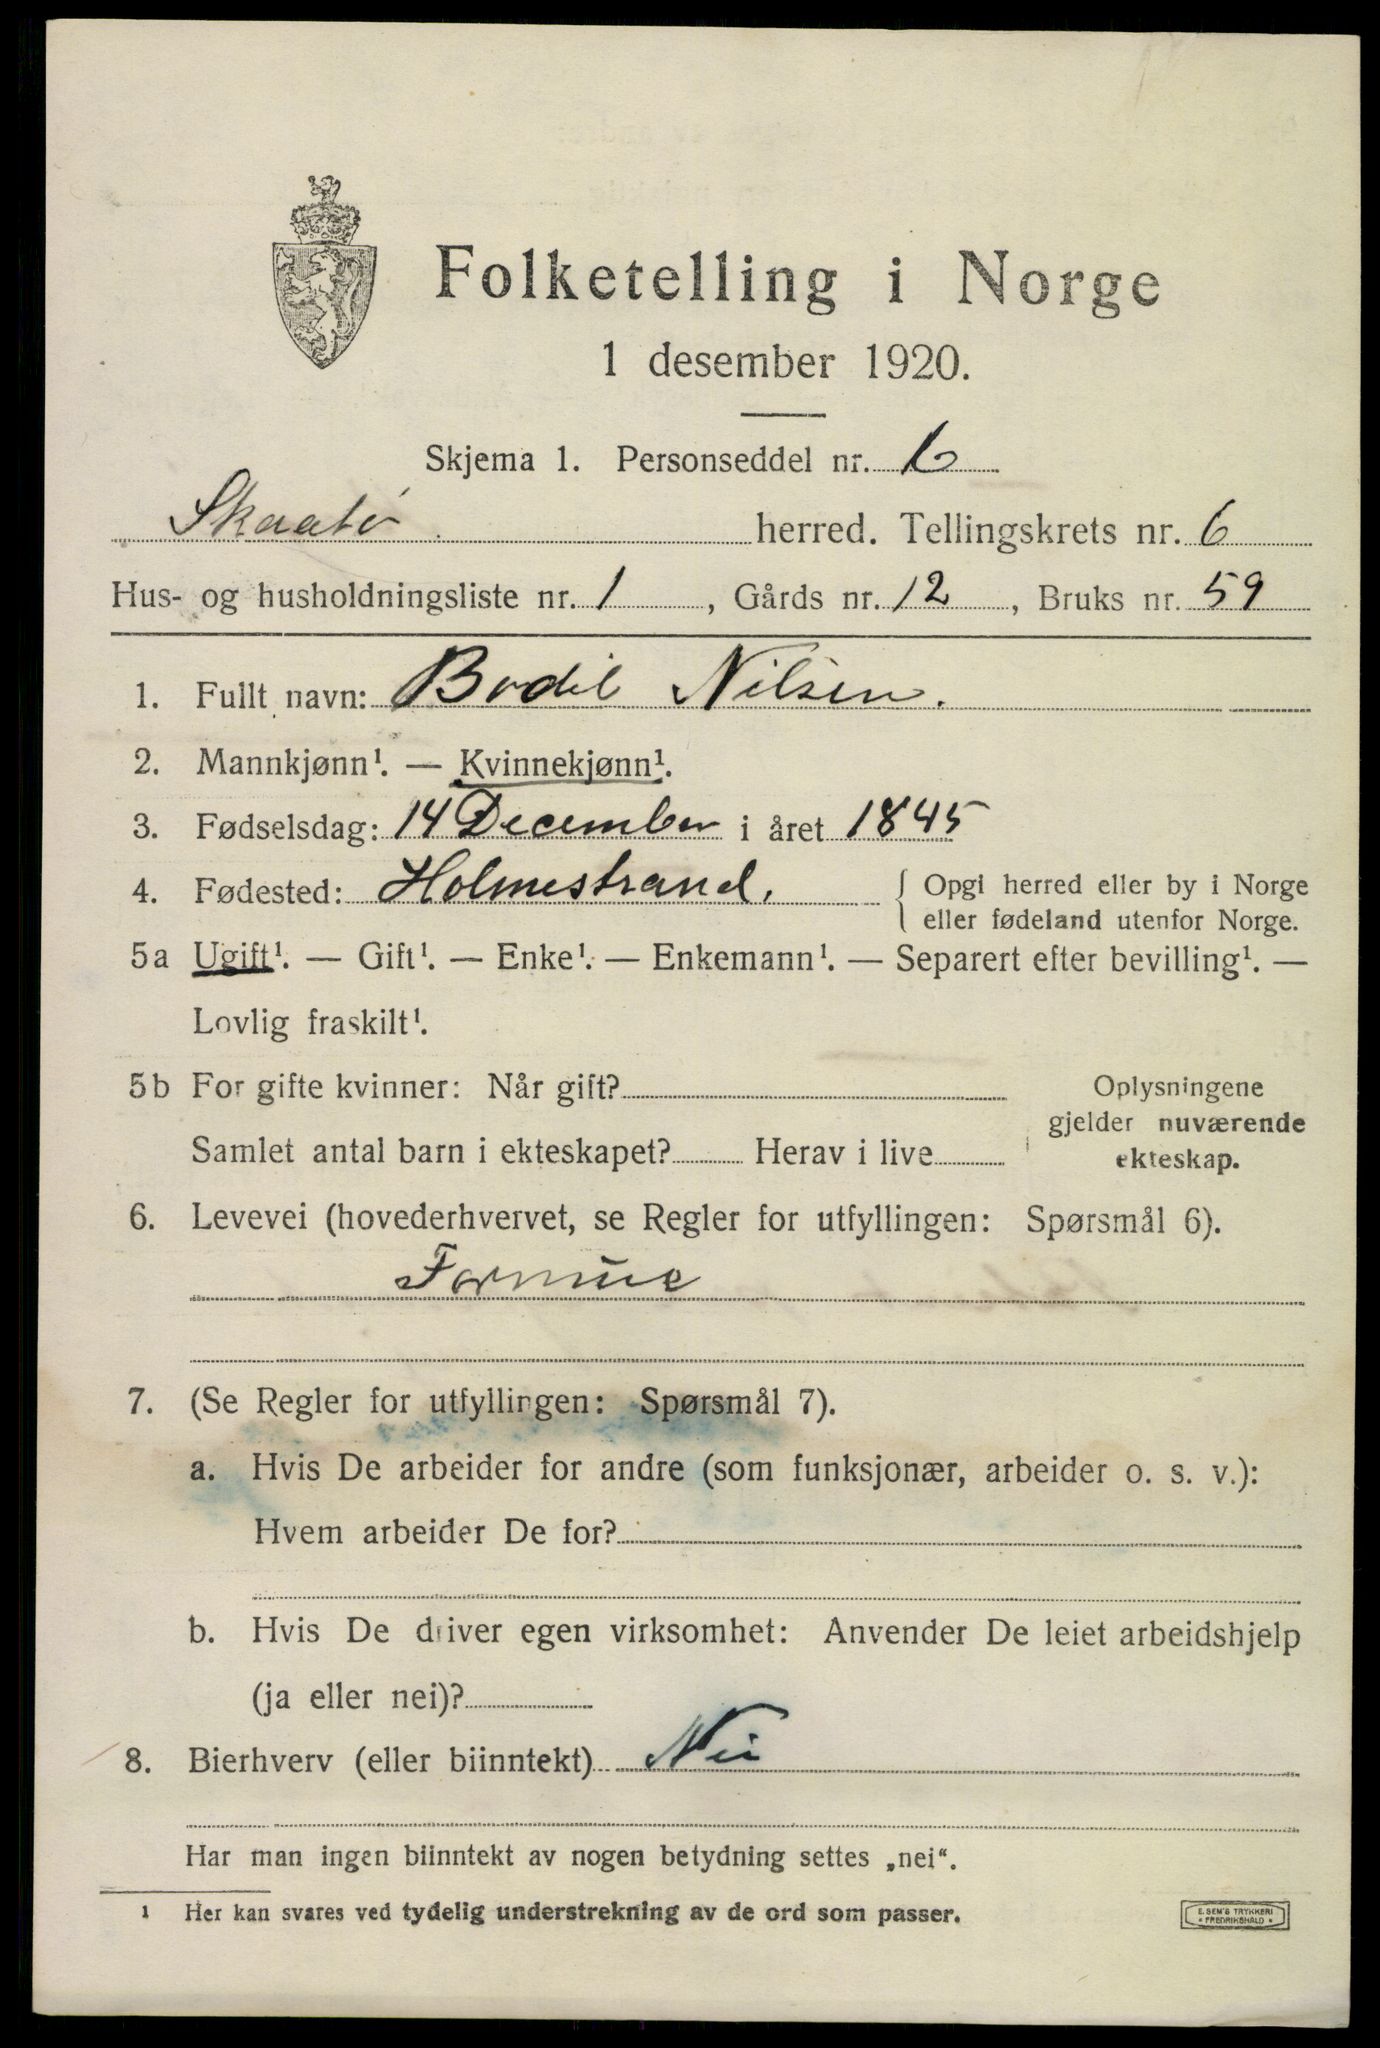 Folketelling i Norge
1 desember 1920.
Skjema 1. Personseddel nr. 6
Skaatø herred. Tellingskrets nr. 6
Hus- og husholdningsliste nr. 1, Gårds nr. 12, Bruks nr. 59
1. Fullt navn: Bodil Nilsen.
2. Mannkjønn¹. — Kvinnekjønn¹.
3. Fødselsdag: 14 December i året 1845
4. Fødested: Holmestrand. { Opgi herred eller by i Norge
eller fødeland utenfor Norge.
5a Ugift¹. — Gift¹. — Enke¹. — Enkemann¹. — Separert efter bevilling¹. —
Lovlig fraskilt¹.
5b For gifte kvinner: Når gift?
Samlet antal barn i ekteskapet? Herav i live
Oplysningene
gjelder nuværende
ekteskap.
6. Levevei (hovederhvervet, se Regler for utfyllingen: Spørsmål 6).
Formue
7. (Se Regler for utfyllingen: Spørsmål 7).
a. Hvis De arbeider for andre (som funksjonær, arbeider o. s. v.):
Hvem arbeider De for?
b. Hvis De driver egen virksomhet: Anvender De leiet arbeidshjelp
(ja eller nei)?
8. Bierhverv (eller biinntekt) Nei
Har man ingen biinntekt av nogen betydning settes „nei“.
¹ Her kan svares ved tydelig understrekning av de ord som passer.
E. SEM'S TRYKKERI
* FREDRIKSHALD *